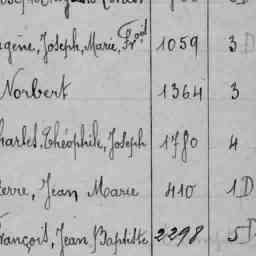 ugène, Joseph, Marie, Fçois 1059 3D
Norbert 1364 3
harles, Théophile, Joseph 1780 4
ierre, Jean Marie 410 1D
rançois, Jean Baptiste 2298 5D